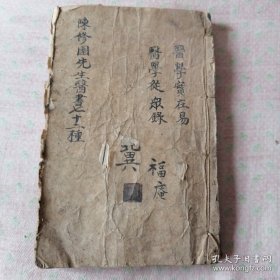 醫學實在易
醫學從眾錄
冀
福庵
陳修園先生醫書二十二種
孔夫子旧书网